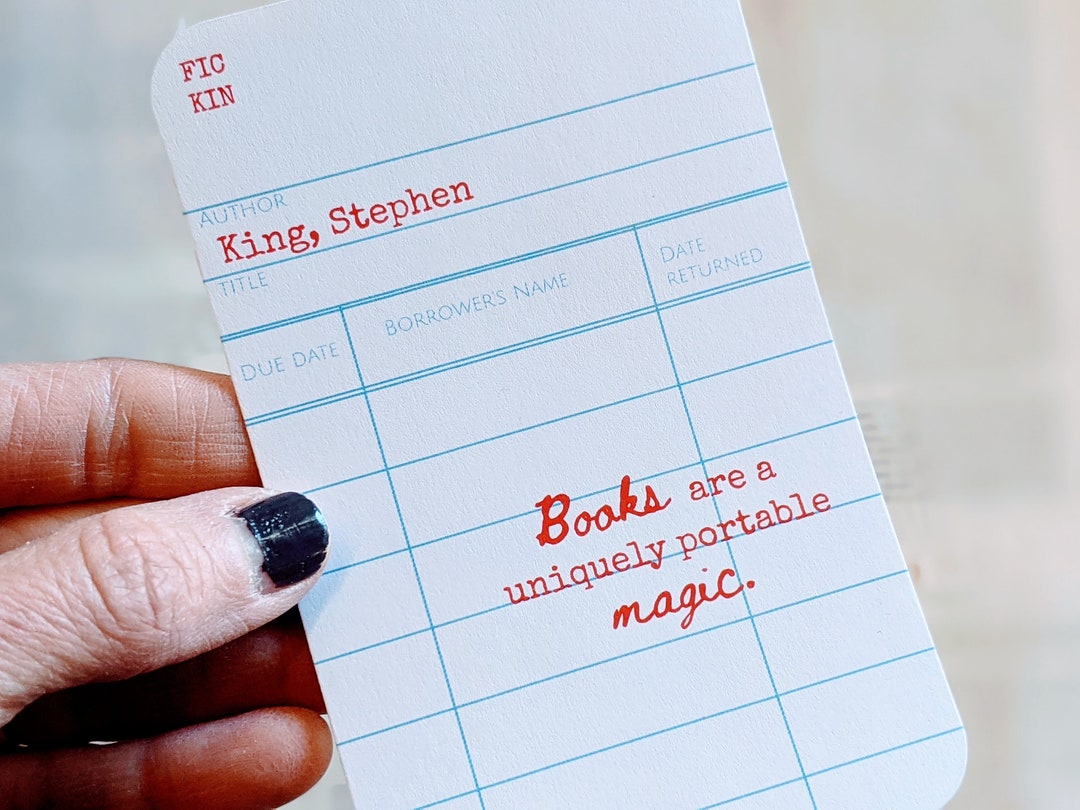 FIC
KIN
AUTHOR
King, Stephen
TITLE
DUE DATE
BORROWER'S NAME
DATE
RETURNED
Books are a
uniquely portable
magic.